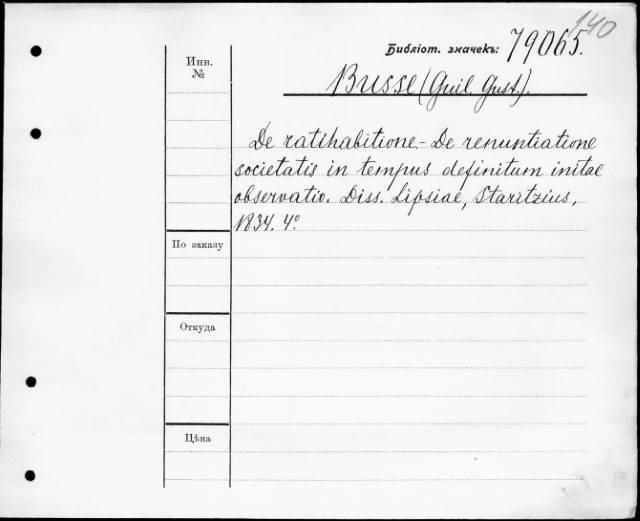 140
Библіот. значекъ: 79065.
Инв.
№
Busse (Guil. Gust.).
De ratihabitione.- De renuntiatione
societatis in tempus definitum initae
observatio. Diss. Lipsiae, Staritzius,
1834. 4º
По заказу
Откуда
Цѣна